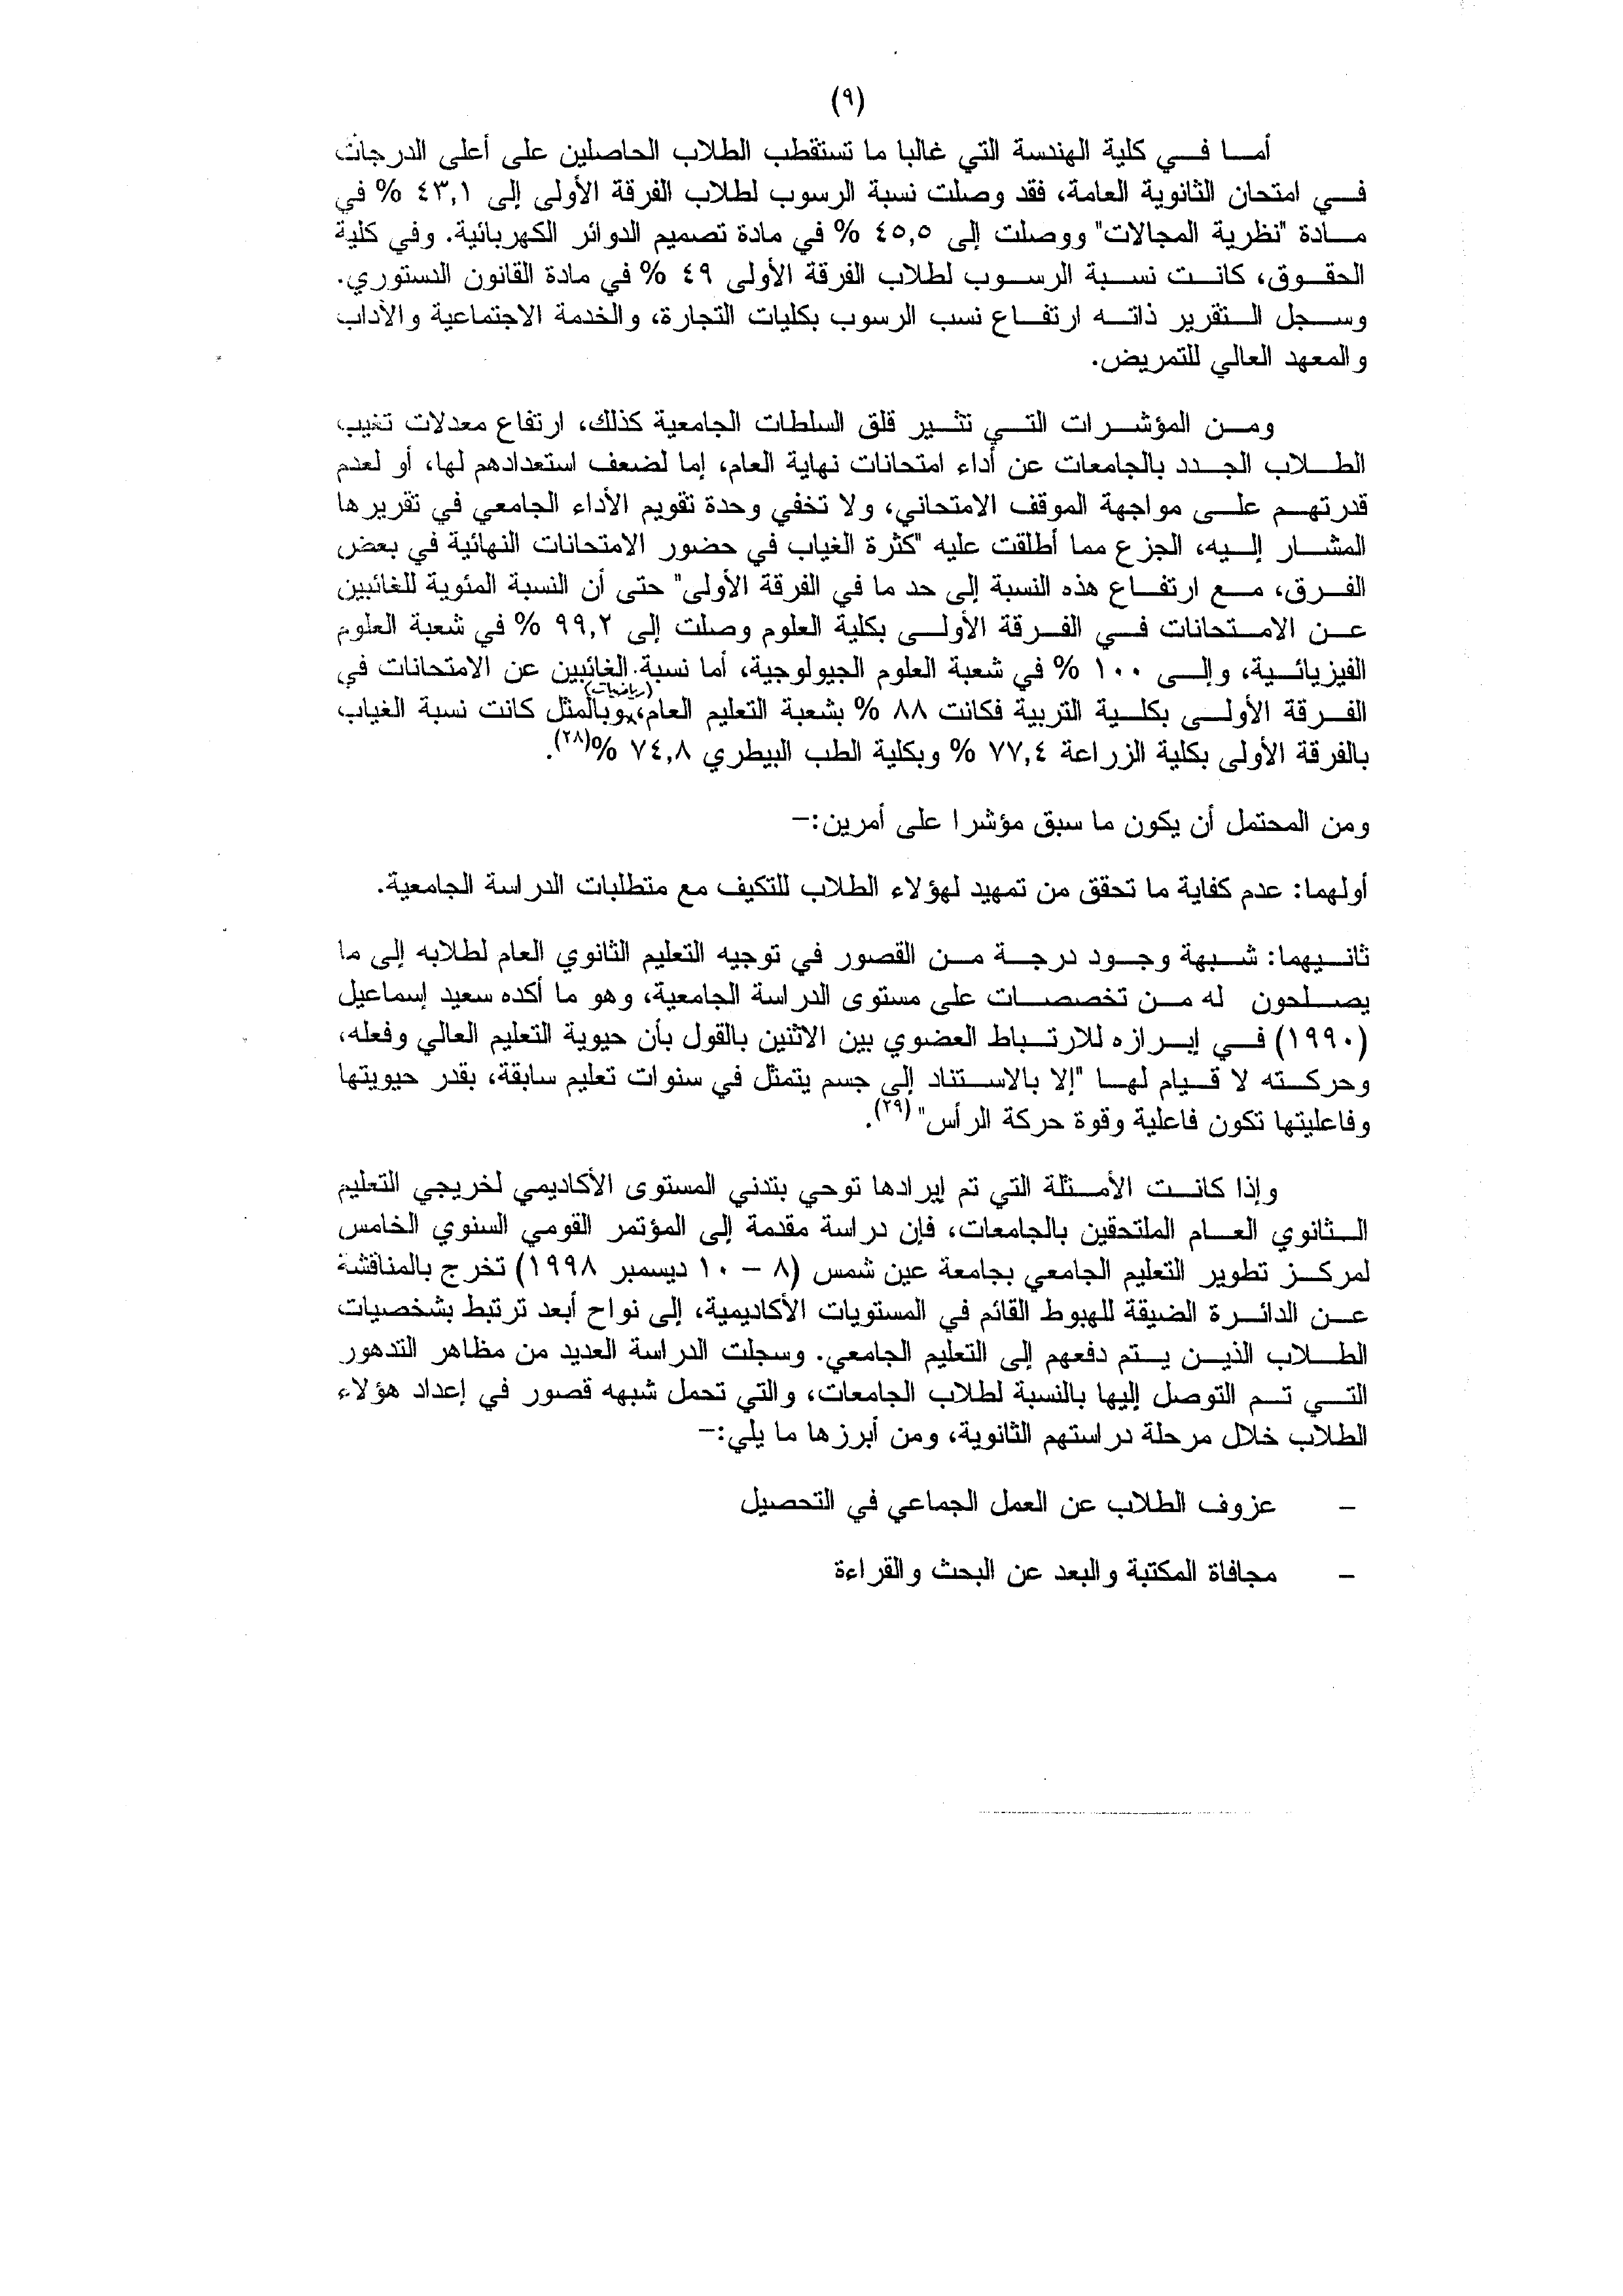 (٩)
أما في كلية الهندسة التي غالبا ما تستقطب الطلاب الحاصلين على أعلى الدرجات
في امتحان الثانوية العامة، فقد وصلت نسبة الرسوب لطلاب الفرقة الأولى إلى ٤٣,١ % في
مادة "نظرية المجالات" ووصلت إلى ٤٥,٥ % في مادة تصميم الدوائر الكهربائية. وفي كلية
الحقوق، كانت نسبة الرسوب لطلاب الفرقة الأولى ٤٩ % في مادة القانون الدستوري.
وسجل التقرير ذاته ارتفاع نسب الرسوب بكليات التجارة، والخدمة الاجتماعية والآداب
والمعهد العالي للتمريض.
ومن المؤشرات التي تثير قلق السلطات الجامعية كذلك، ارتفاع معدلات تغيب
الطلاب الجدد بالجامعات عن أداء امتحانات نهاية العام، إما لضعف استعدادهم لها، أو لعدم
قدرتهم على مواجهة الموقف الامتحاني، ولا تخفي وحدة تقويم الأداء الجامعي في تقريرها
المشار إليه، الجزع مما أطلقت عليه "كثرة الغياب في حضور الامتحانات النهائية في بعض
الفرق، مع ارتفاع هذه النسبة إلى حد ما في الفرقة الأولى" حتى أن النسبة المئوية للغائبين
عن الامتحانات في الفرقة الأولى بكلية العلوم وصلت إلى ٩٩,٢ % في شعبة العلوم
الفيزيائية، وإلى ١٠٠ % في شعبة العلوم الجيولوجية، أما نسبة الغائبين عن الامتحانات في
(رياضيات)
الفرقة الأولى بكلية التربية فكانت ٨٨ % بشعبة التعليم العام، وبالمثل كانت نسبة الغياب
بالفرقة الأولى بكلية الزراعة ٧٧,٤ % وبكلية الطب البيطري ٧٤,٨ %(٢٨).
ومن المحتمل أن يكون ما سبق مؤشرا على أمرين:-
أولهما: عدم كفاية ما تحقق من تمهيد لهؤلاء الطلاب للتكيف مع متطلبات الدراسة الجامعية.
ثانيهما: شبهة وجود درجة من القصور في توجيه التعليم الثانوي العام لطلابه إلى ما
يصلحون له من تخصصات على مستوى الدراسة الجامعية، وهو ما أكده سعيد إسماعيل
(١٩٩٠) في إبرازه للارتباط العضوي بين الاثنين بالقول بأن حيوية التعليم العالي وفعله،
وحركته لا قيام لها "إلا بالاستناد إلى جسم يتمثل في سنوات تعليم سابقة، بقدر حيويتها
وفاعليتها تكون فاعلية وقوة حركة الرأس" (٢٩).
وإذا كانت الأمثلة التي تم إيرادها توحي بتدني المستوى الأكاديمي لخريجي التعليم
الثانوي العام الملتحقين بالجامعات، فإن دراسة مقدمة إلى المؤتمر القومي السنوي الخامس
لمركز تطوير التعليم الجامعي بجامعة عين شمس (٨ – ١٠ ديسمبر ١٩٩٨) تخرج بالمناقشة
عن الدائرة الضيقة للهبوط القائم في المستويات الأكاديمية، إلى نواح أبعد ترتبط بشخصيات
الطلاب الذين يتم دفعهم إلى التعليم الجامعي. وسجلت الدراسة العديد من مظاهر التدهور
التي تم التوصل إليها بالنسبة لطلاب الجامعات، والتي تحمل شبهه قصور في إعداد هؤلاء
الطلاب خلال مرحلة دراستهم الثانوية، ومن أبرزها ما يلي:-
– عزوف الطلاب عن العمل الجماعي في التحصيل
– مجافاة المكتبة والبعد عن البحث والقراءة